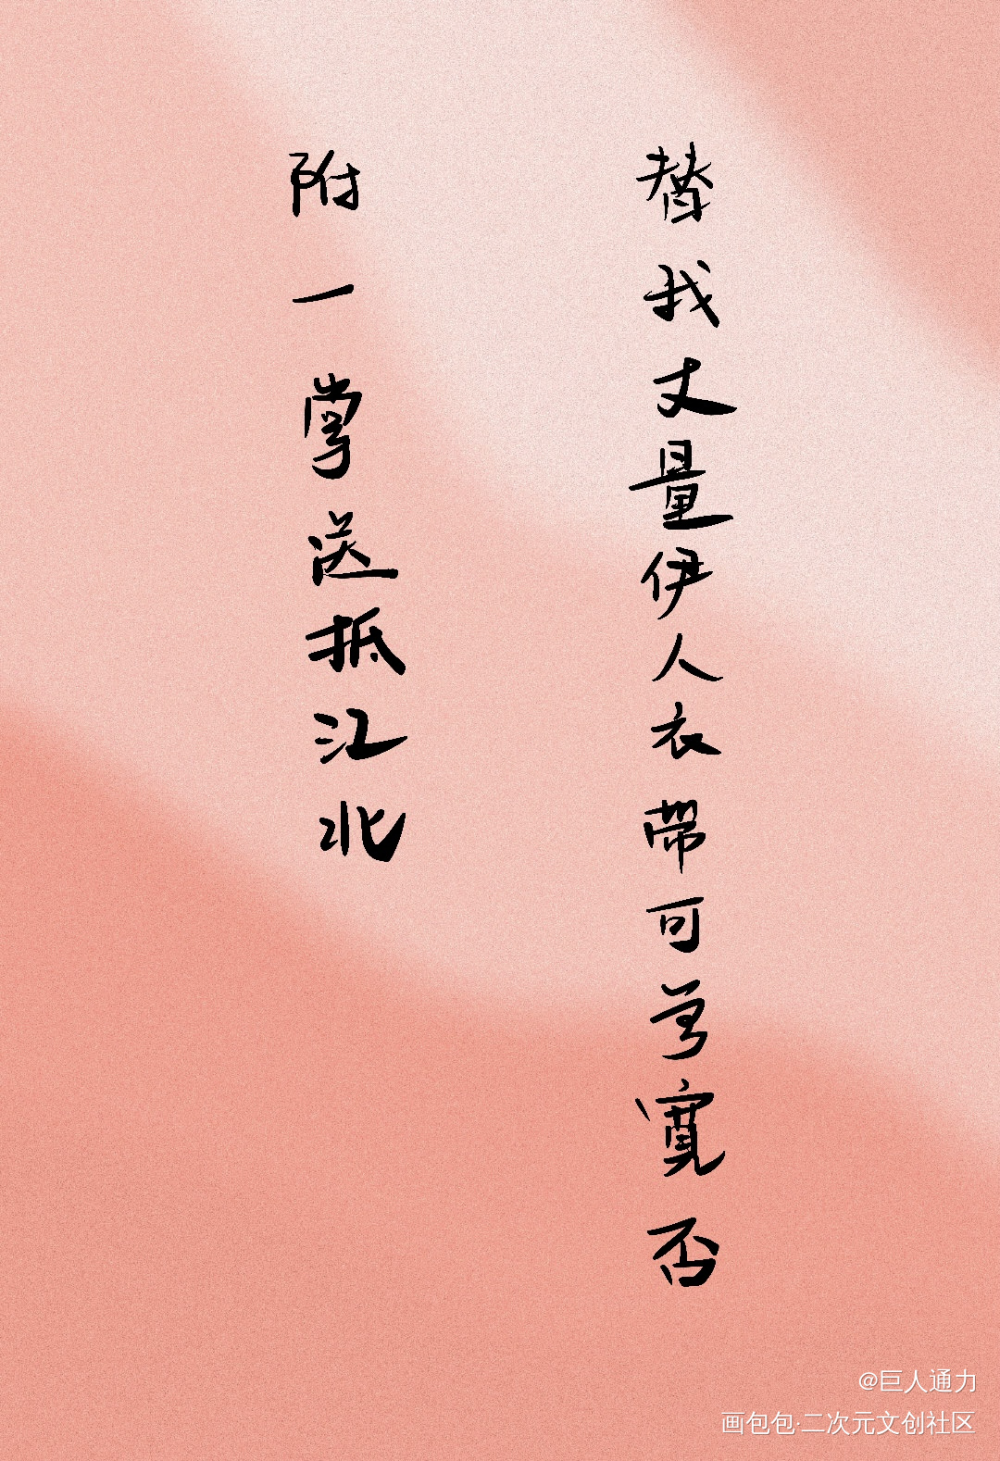 替我丈量伊人衣带可曾宽否
附一掌送抵江北
@巨人通力
画包包·二次元文创社区